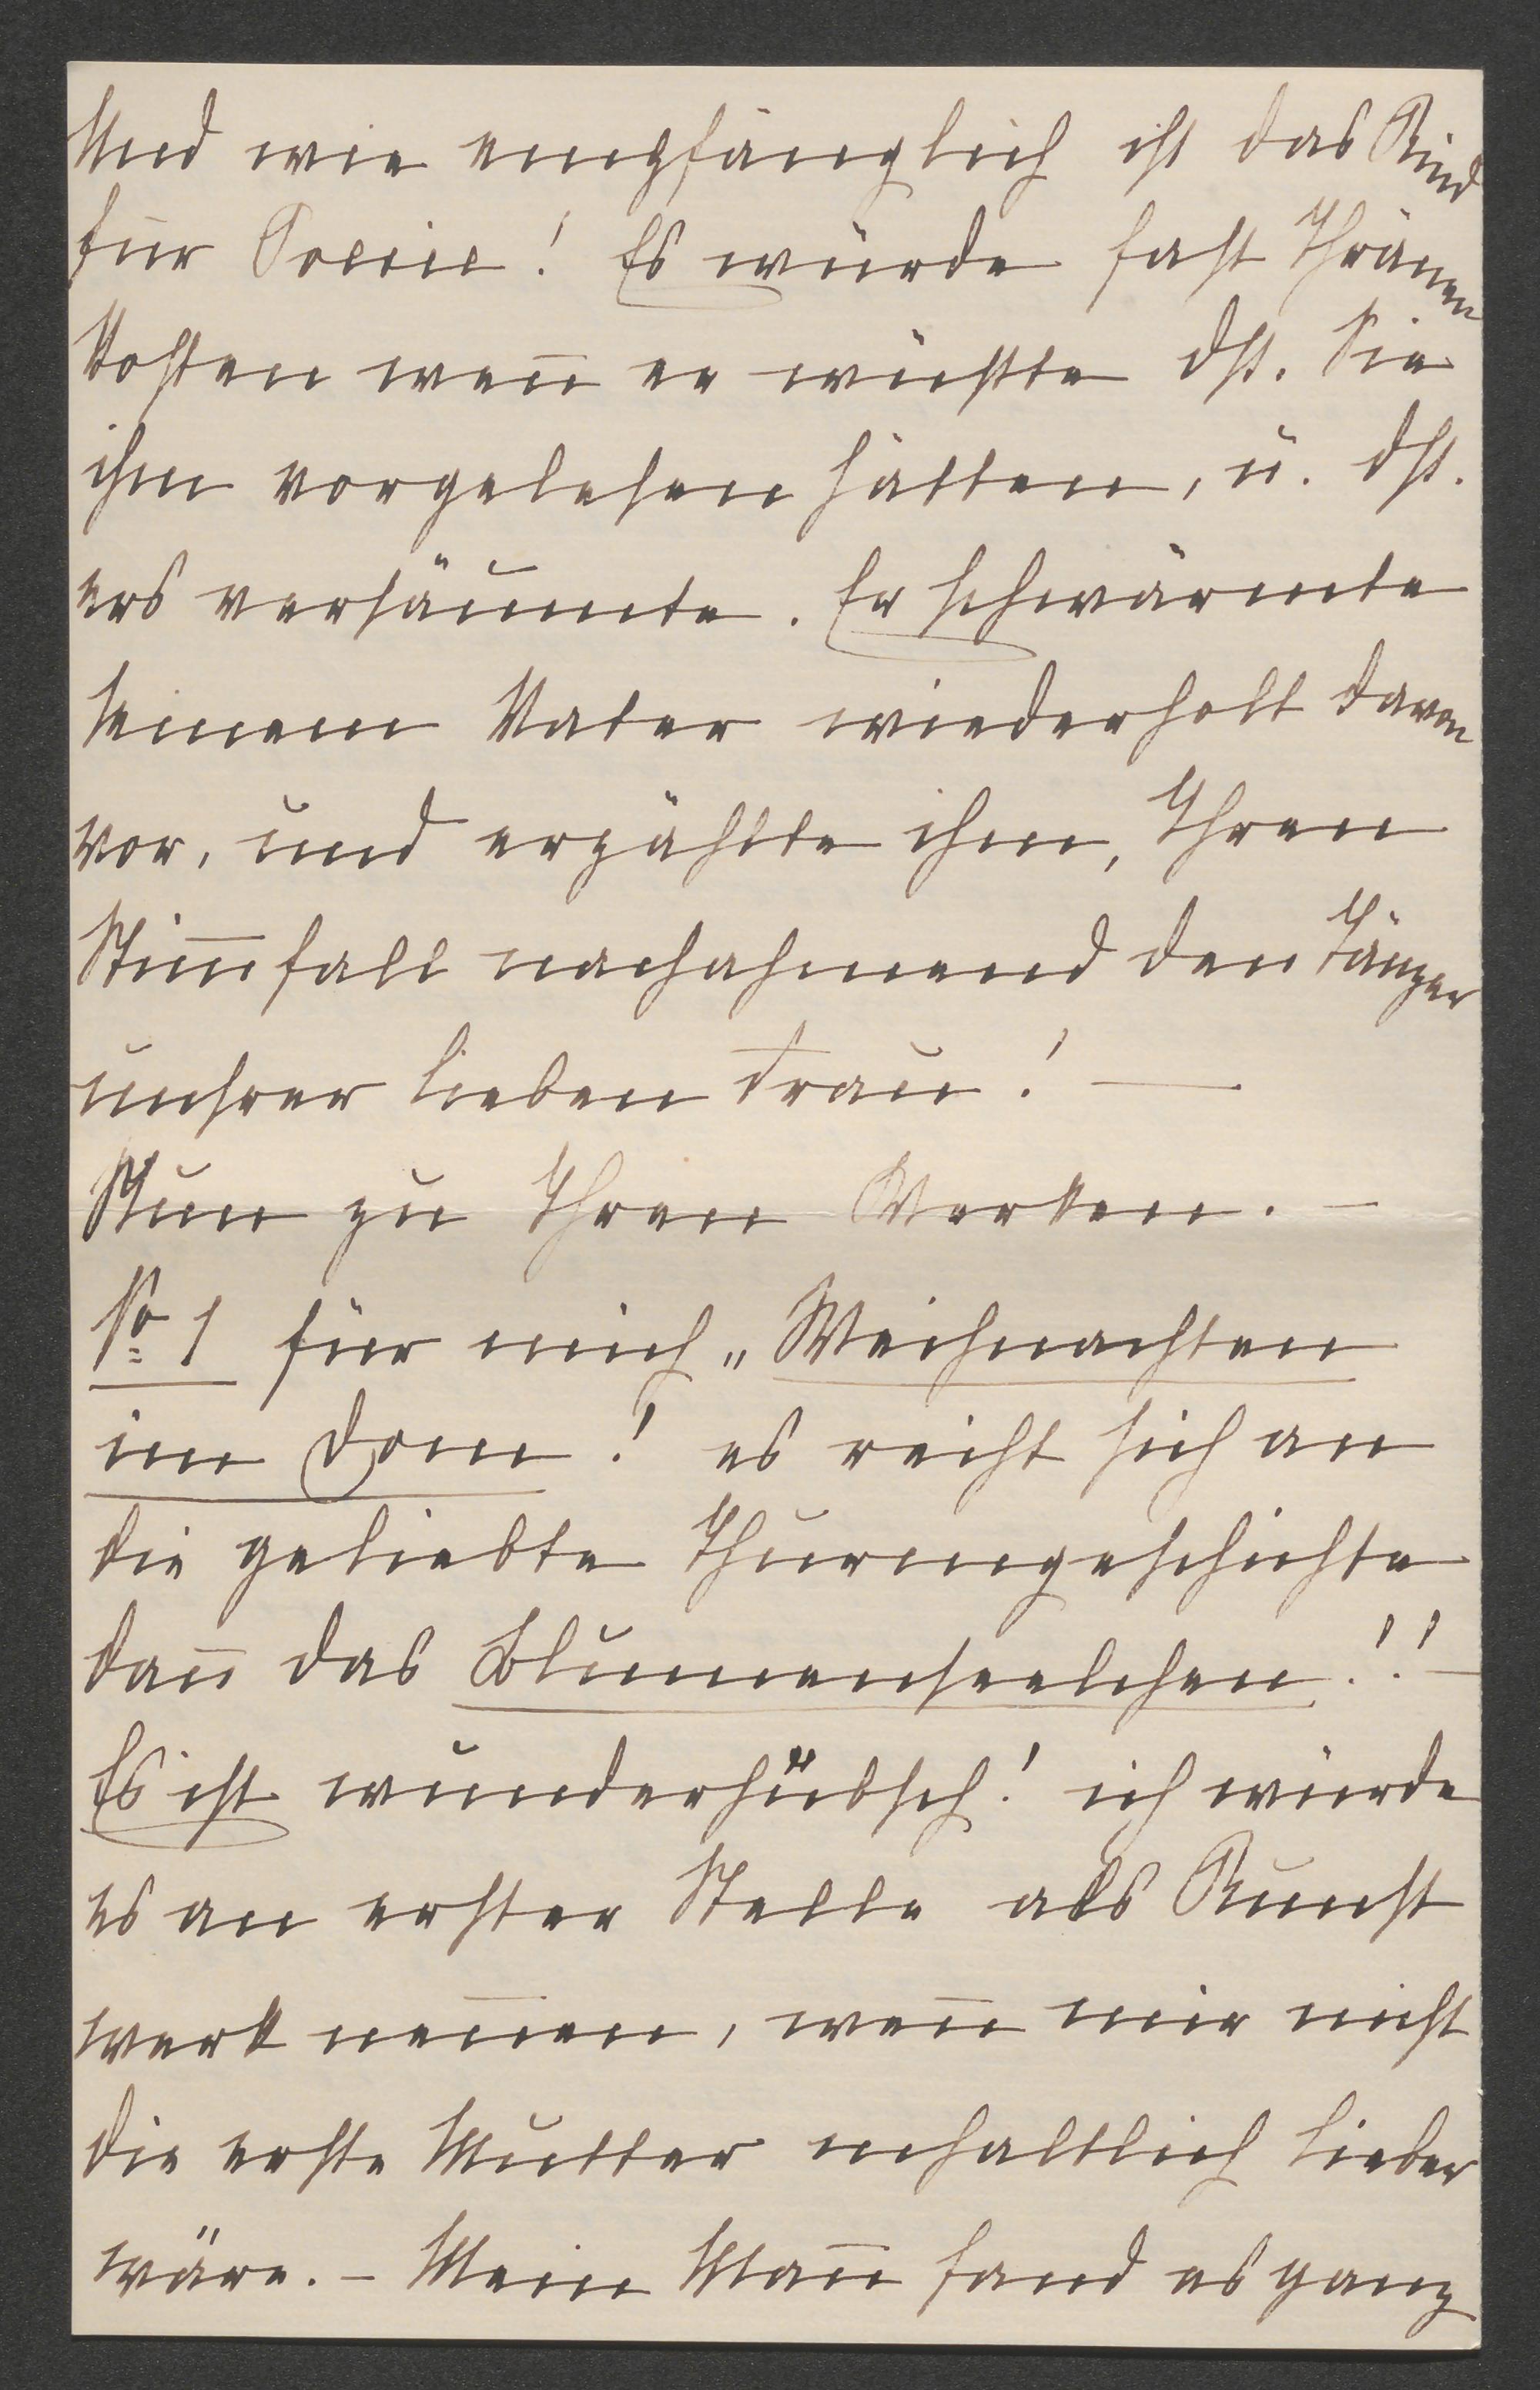 Und wie empfänglich ist das Kind
für Poesie! Es würde fast Thränen
kosten wen̅ er wüsste dß. Sie
ihm vorgelesen hätten, u. dß.
ers versäumte. Er schwärmte
seinem Vater wiederholt davon
vor, und erzählte ihm, Ihren
Stim̅fall nachahmend den Tänzer
unsrer lieben Frau! —
Nun zu Ihren Werken. —
No 1 für mich „Weihnachten
im Dom! es reiht sich an
die geliebte Thurmgeschichte
dan̅ das Blumenseelchen!! —
Es ist wunderhübsch! ich würde
es an erster Stelle als Kunst
werk nen̅en, wen̅ mir nicht
die erste Mutter inhaltlich lieber
wäre. – Mein Man̅ fand es ganz